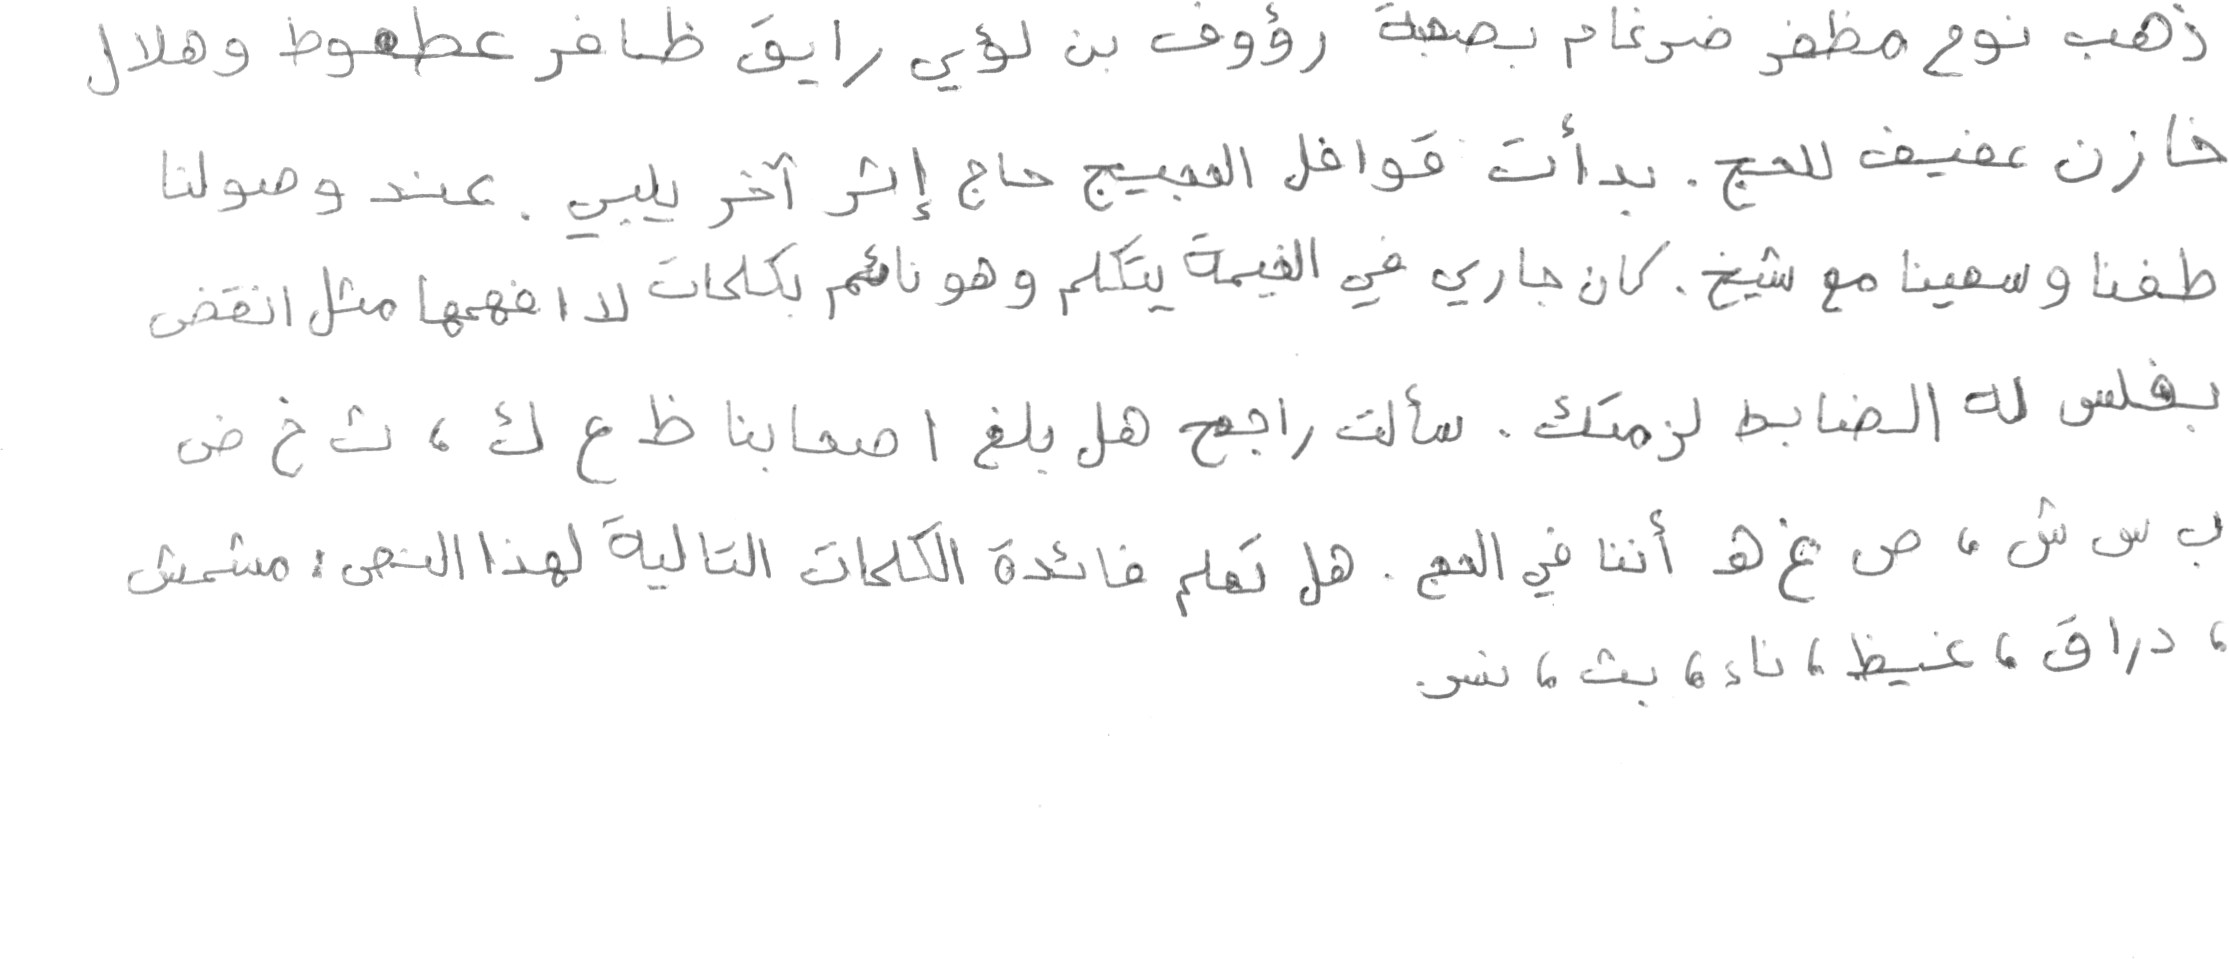 ذهب نوح مظفر ضرغام بصحبة رؤوف بن لؤي رايق ظافر عطعوط وهلال
خازن عفيف للحج . بدأت قوافل الحجيج حاج إثر آخر يلبي . عند وصولنا
طفنا وسعينا مع شيخ . كان جاري في الخيمة يتكلم وهو نائم بكلمات لا افهمها مثل انقض
بغلس له الضابط لزمتك . سألت راجح هل بلغ اصحابنا ظ ع ك ، ث خ ض
ب س ش ، ص غ هـ أننا في الحج . هل تعلم فائدة الكلمات التالية لهذا النص : مشمش
، دراق ، غيظ ، ناء ، بث ، نسر.